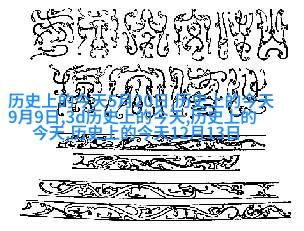 历史上的今天5月20日,历史上的今天
9月9日,3d历史上的今天,历史上的
今天,历史上的今天12月13日